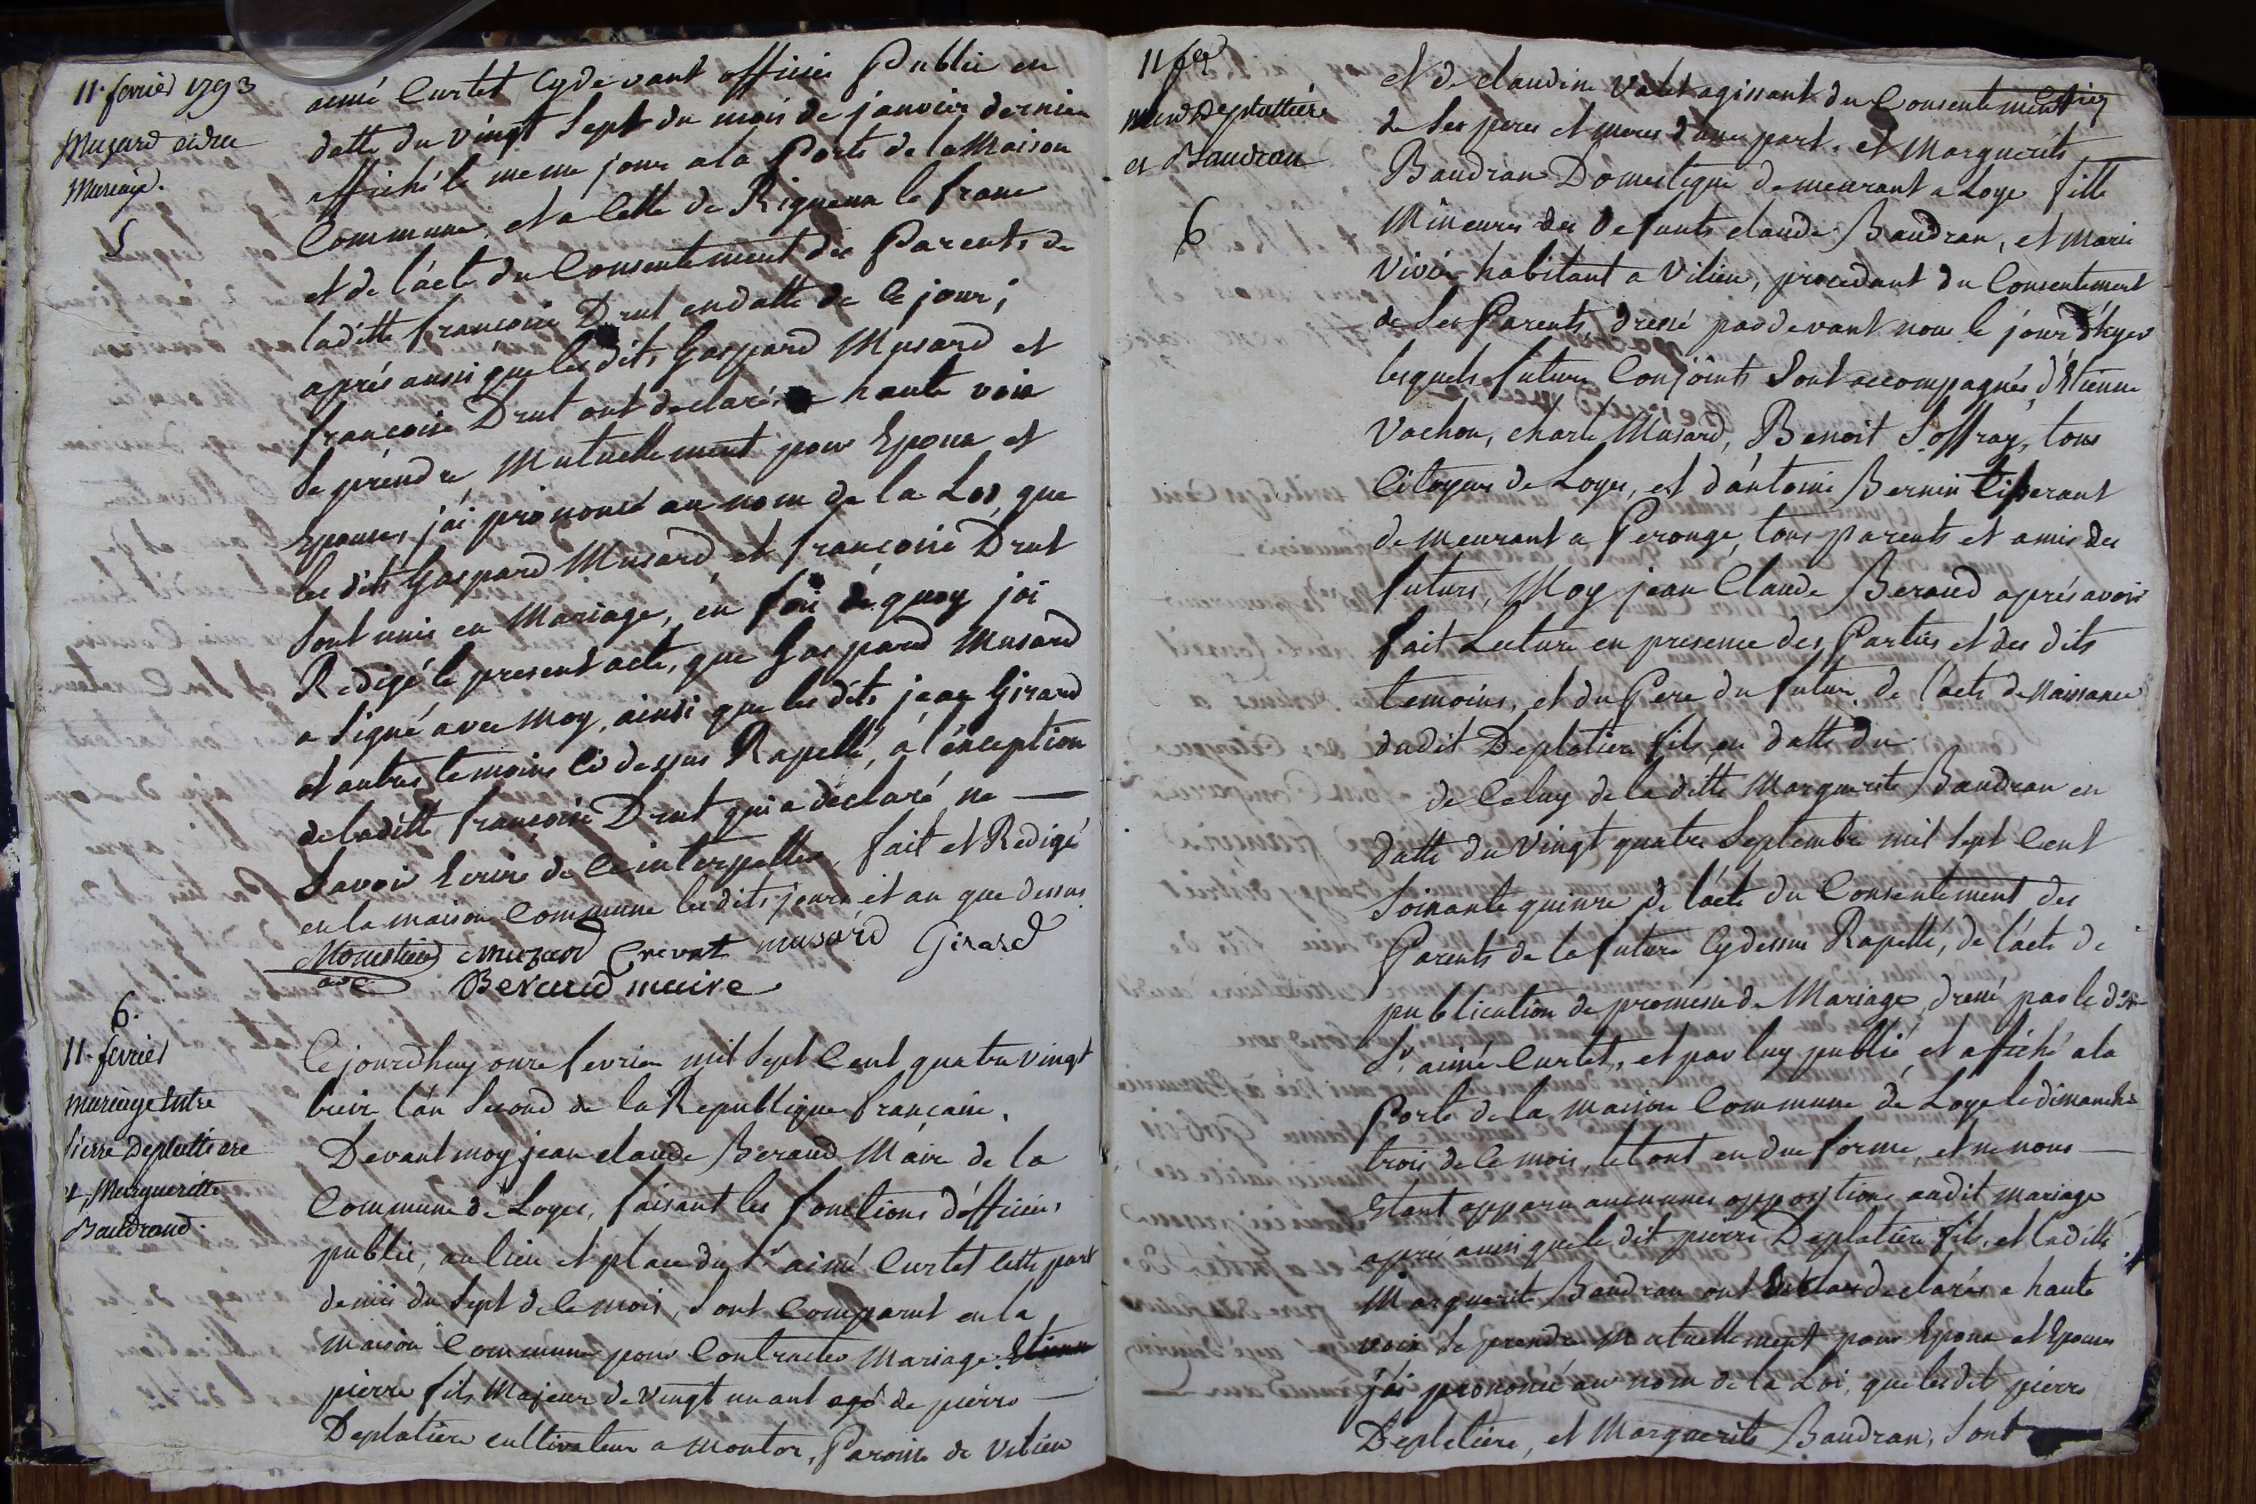 11 fevrier 1793
Muzard et dru
Mariage.
5
aimé Curtet Cydevant officier Public en
datte du vingt Sept du mois de janvier dernier
affiché le meme jour a la Porte de la Maison
Commune, et a Celle de Rigneux le franc
et de l'acte du Consentement des Parents de
laditte françoise Drut en datte de Ce jour;
aprés aussi que lesdits Gaspard Musard et
françoise Drut ont declaré a haute voix
Se prendre Mutuellement pour Epoux et
Epouse, j'ai prononcé au nom de la Loi, que
lesdits Gaspard Musard et françoise Drut
Sont unis en Mariage, en foi de quoy j'ai
Redigé le present acte, que Gaspard Musard
a Signé avec Moy, ainsi que lesdits jean Girard
et autres temoins Ci dessus Rapellé, a l'exception
de laditte françoise Drut qui a declaré ne
Savoir Ecrire de Ce interpellée, fait et Redigé
en la maison Commune lesdits jours et an que dessus
Monestier muzard Crevat musard Girard
Beraud maire
6.
11 fevrier
Mariage Entre
Pierre Deplattiere
et Margueritte
Baudrand.
Cejourdhuy onze fevrier mil Sept Cent quatre vingt
treize l'an Second de la Republique française.
Devant moy jean claude Beraud Maire de la
Commune de Loyes, faisant les fonctions d'officier
public, au lieu et place du Sr aimé Curtet Cette part
demis du Sept de Ce mois, Sont Comparut en la
maison Commune pour Contracter Mariage. Etienne
pierre fils Majeur de vingt un ant agé de pierre
Deplatiere cultivateur a Montor, Paroisse de Vilieu
11 fer
Deplattiere
et Baudran
6
et de claudine Valet agissant du Consentement
de Ses peres et meres d'une part. et Marguerite
Baudran Domestique demeurant a Loye fille
Mineure des Defunts claude Baudran, et Marie
Vivier habitant a Vilieu, procedant du Consentement
de Ses Parents, dressé pardevant nous le jour d'hyer
lesquels futurs Conjoints Sont accompagnés d'Etienne
Vachon, charle Musard, Benoit Joffray, tous
Citoyens de Loyes, et d'antoine Bernin tisserant
demeurant a Perouge, tous parents et amis des
futurs, Moy jean Claude Beraud aprés avoir
fait Lecture en presence des Parties et des dits
temoins, et du Pere du futur de l'acte de Naissance
dudit Deplatiere fils, en datte du
de Celuy de laditte Marguerite Baudran en
datte du vingt quatre Septembre mil Sept Cent
Soixante quinze de l'acte du Consentement des
Parents de la future Cydessus Rapellé, de l'acte de
publication de promesse de Mariage, dressé par le dit
Sr aimé Curtet, et par luy publié et affiché a la
Porte de la maison Commune de Loye le dimanche
trois de Ce mois, le tout en due forme, et ne nous
Etant apparu aucunnes oppositions audit mariage
aprés aussi que le dit pierre Deplatiere fils, et laditte
Marguerite Baudran ont declarés a haute
voix Se prendre Mutuellement pour Epoux et Epouse
j'ai prononcé au nom de la Loi, que lesdit pierre
Depletiere, et Marguerite Baudran, Sont